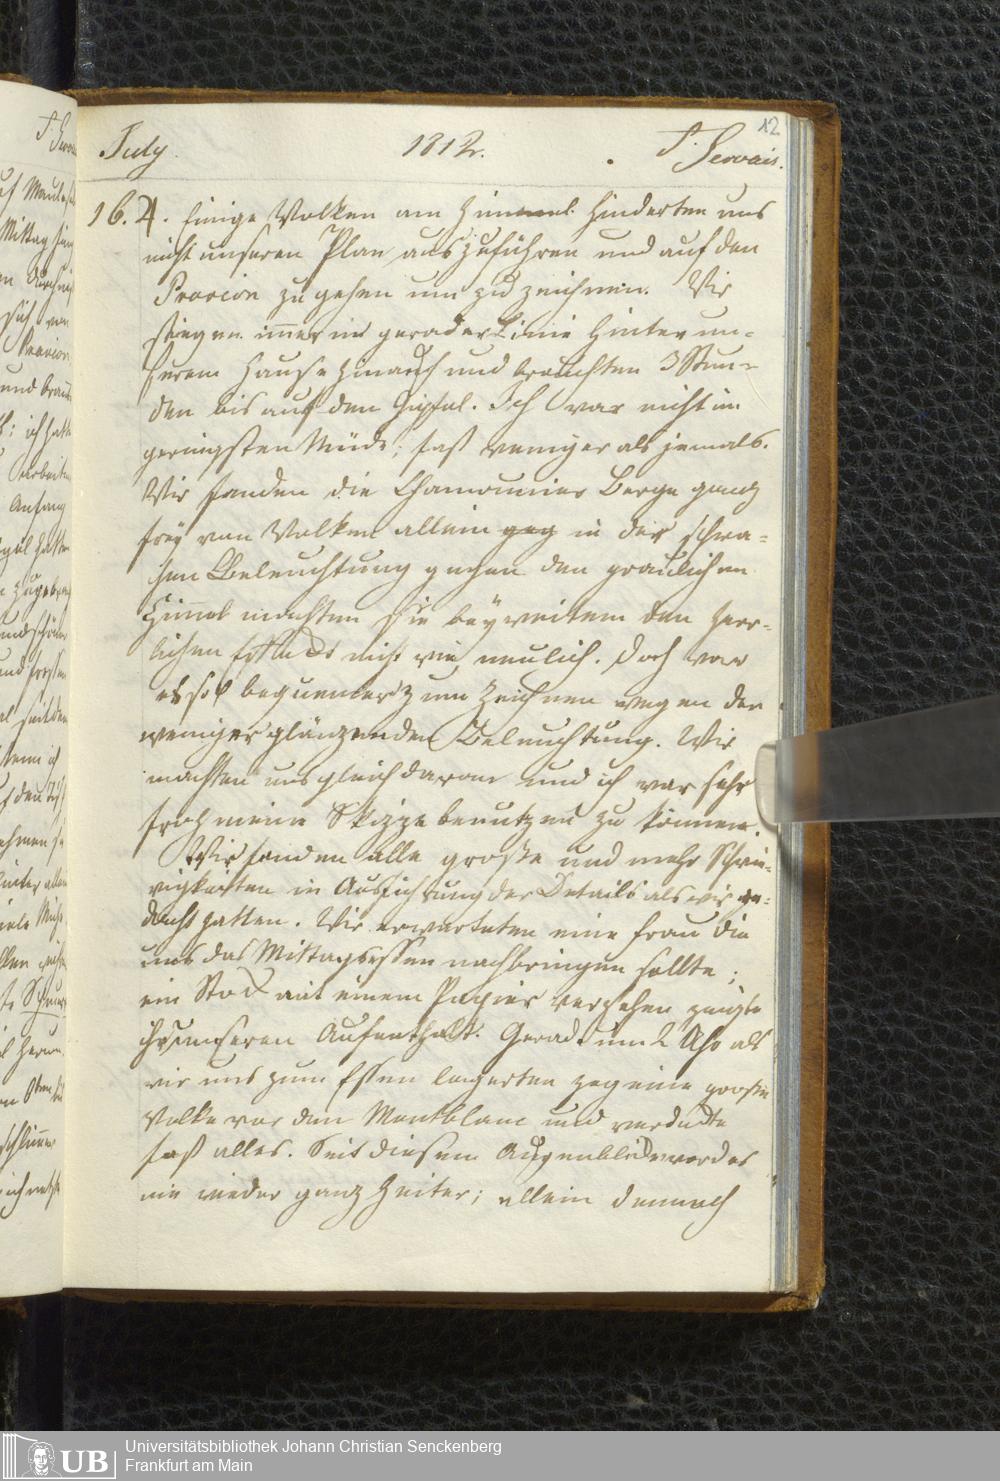 12
July. 1812. S. Servais.
16. ♃. Einige Wolken am Himmel hinderten uns
nicht unseren Plan auszuführen und auf den
Prarion zu gehen um zu zeichnen. Wir
stiegen immer in gerader Linie hinter un-
serem Hause hinauf und brauchten 3 Stun-
den bis auf den Gipfel. Ich war nicht im
geringsten Müde; fast weniger als jemals.
Wir fanden die Chamounier Berge ganz
frey von Wolken allein geg in der schwa-
chen Beleuchtung gegen den graulichen
Himel machten sie bey weitem den herr-
lichen Effect nicht wie neulich. Doch war
es so bequemer zum Zeichnen wegen der
weniger glänzenden Beleuchtung. Wir
machten uns gleich daran und ich war sehr
froh meine Skizze benutzen zu können.
Wir fanden alle große und mehr Schwie-
rigkeiten in Ausführung der Details als wir ge-
dacht hatten. Wir erwarteten eine Frau die
uns das Mittagsessen nachbringen sollte;
ein Stock mit einem Papier versehen zeigte
ihr unseren Aufenthalt. Gerade um 2 Uhr als
wir uns zum Essen lagerten zog eine große
Wolke vor den Montblanc und verdeckte
fast alles. Seit diesem Augenblick ward es
nie wieder ganz heiter; allein dennoch
Universitätsbibliothek Johann Christian Senckenberg
Frankfurt am Main
UB